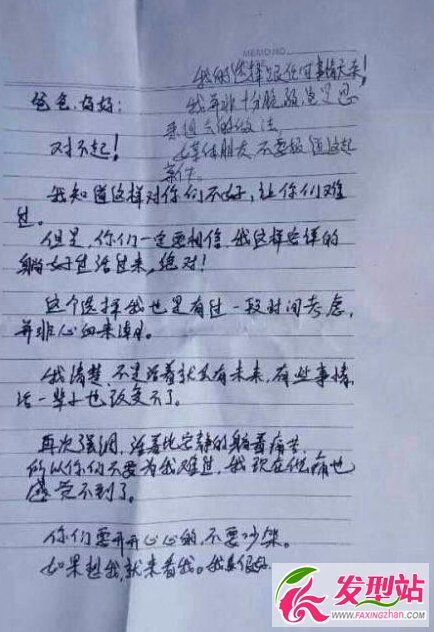 MEMO NO.
我的选择跟任何事情无关!
我并非十分脆弱,
的做法
不要报道这起
事件。
爸爸、妈妈:
对不起!
我知道这样对你们不好,让你们难
过。
但是,你们一定要相信,我这样安详的
躺好过活过来,绝对!
这个选择我也是有过一段时间考虑,
并非心血来潮。
我清楚,不是活着就会有未来,有些事情,
活一辈子也改变不了。
再次强调,活着比安静的躺着痛苦,
所以你们不要为我难过,我现在连痛也
感觉不到了。
你们要开开心心的,不要吵架。
如果想我,就来看我。我真很好
发型站
WWW.FAXINGZHAN.COM